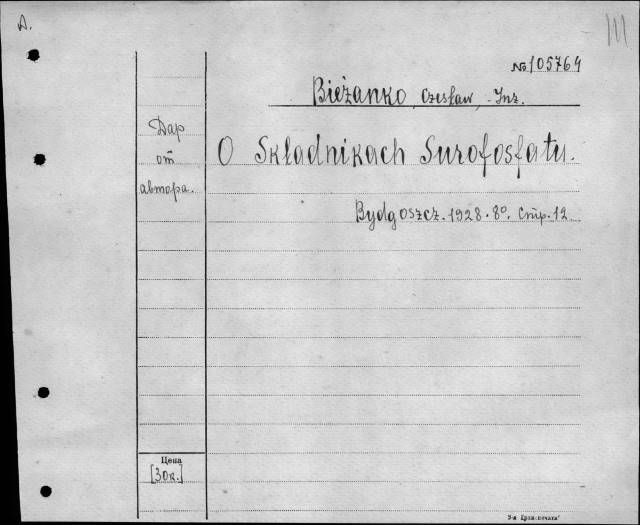 A.
III
№ 105764
Bieżanko Czesław, Inż.
Дар
от
автора.
O Składnikach Surofosfatu.
Bydgoszcz. 1928. 8°. Стр. 12.
Цена
[30к.]